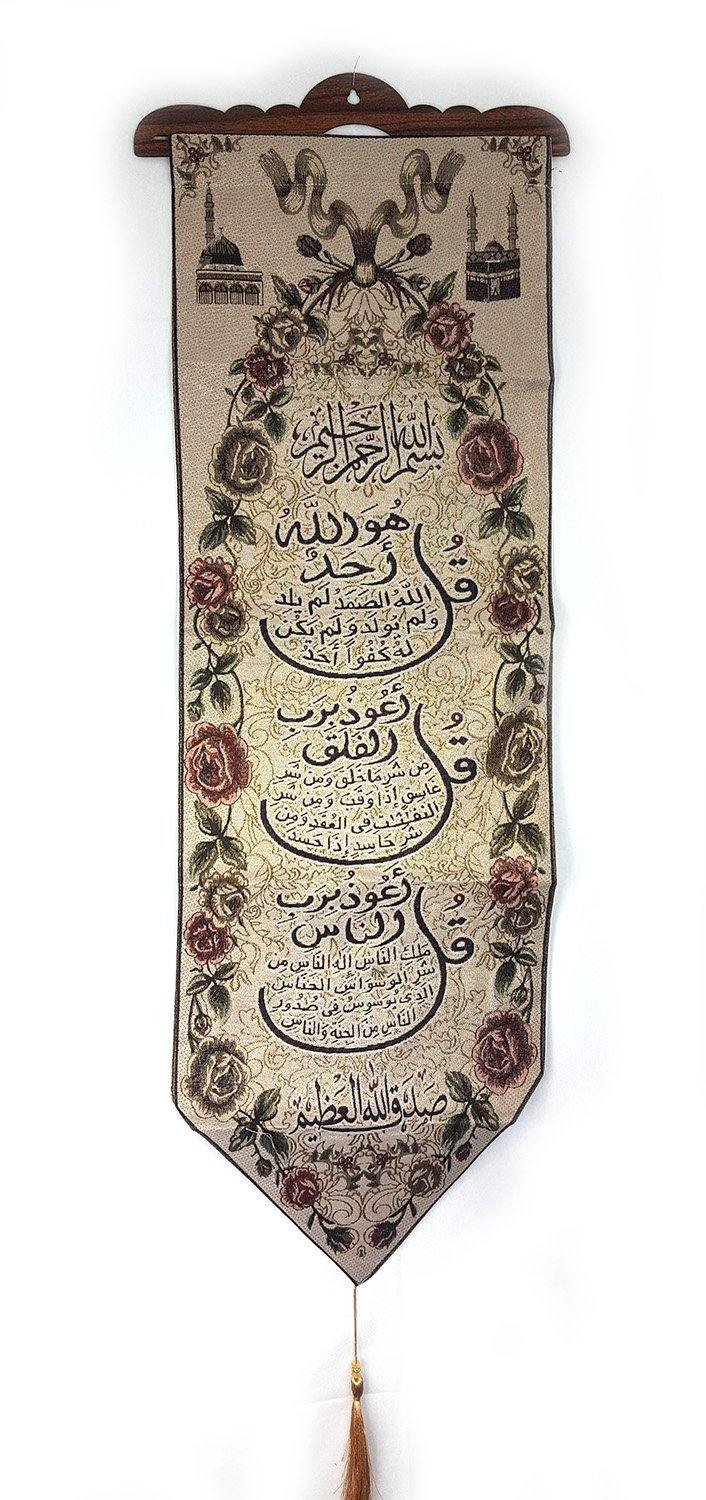 بسم الله الرحمن الرحيم
قُل هُوَ اللَّهُ
أَحَدٌ
الله الصَمَدُ لَم يَلِد
وَلَم يُولَد وَلَم يَكُن
لَهُ كُفُواً أَحَدٌ
قُل أَعُوذُ بِرَبِ
الفَلَقِ
مِن شَرِ مَا خَلَقَ وَمِن شَرِ
غَاسِقٍ إِذَا وَقَبَ وَمِن شَرِ
النَفَّثَتِ فِي العُقَدِ وَمِن
شَرِ حَاسِدٍ إِذَا حَسَدَ
قُل أَعُوذُ بِرَبِ
النَاسِ
مَلِكِ النَاسِ اله النَاسِ مِن
شَرِ الوَسوَاسِ الخَنَاسِ
الَذِى يُوَسوِسُ فِى صُدُورِ
النَاسِ مِنَ الجِنَةِ وَالنَاسِ
صدق الله العظيم